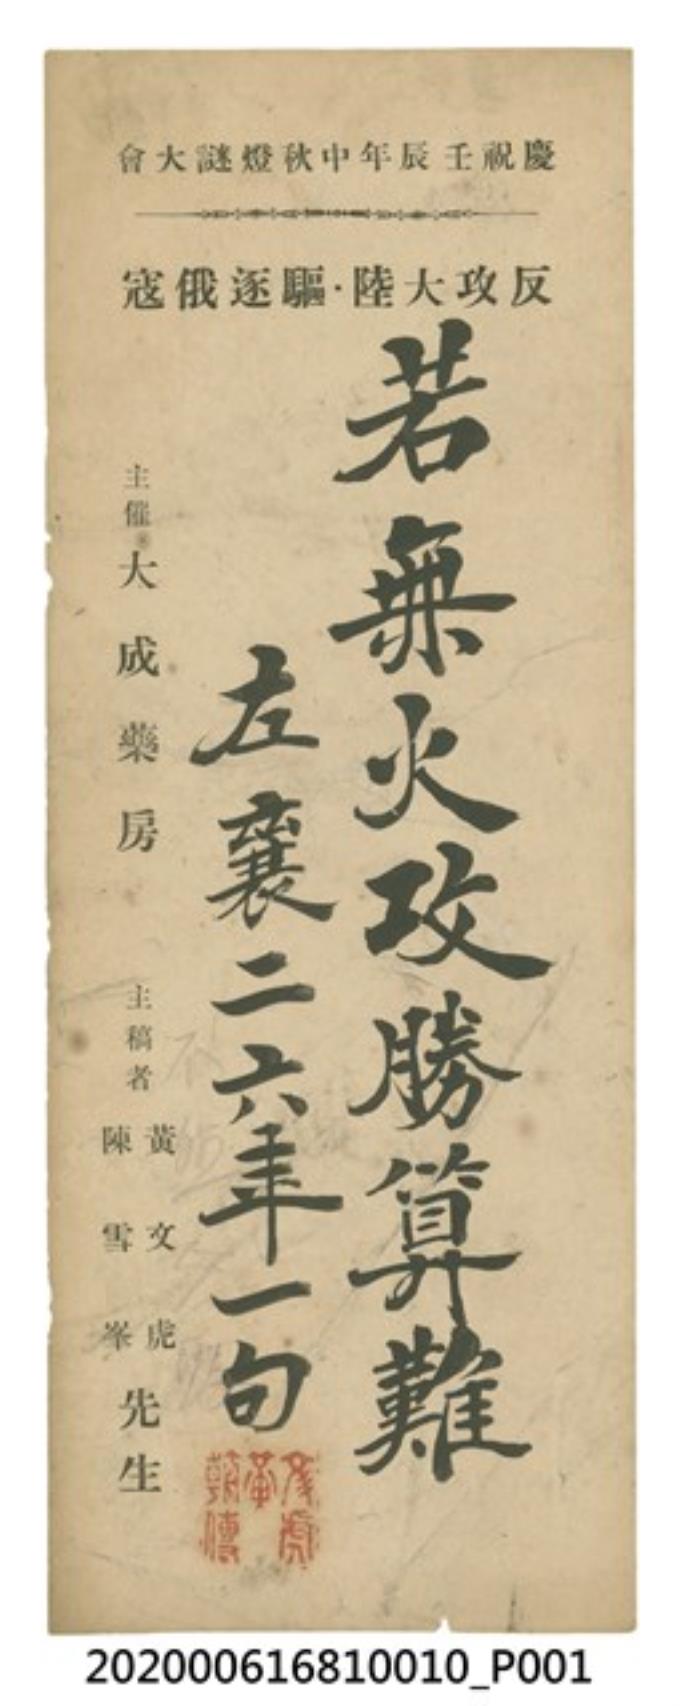 慶祝壬辰年中秋燈謎大會
反攻大陸·驅逐俄寇
若無火攻勝算難
左襄二六年一句
主催 大成藥房
主稿者 黃文虎 陳雪峯 先生
202000616810010_P001